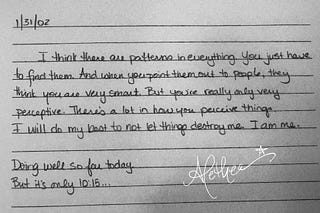 1/31/02
I think there are patterns in everything. You just have
to find them. And when you point them out to people, they
think you are very smart. But you're really only very
perceptive. There's a lot in how you perceive things.
I will do my best to not let things destroy me. I am me.
Doing well so far today.
But it's only 10:15...